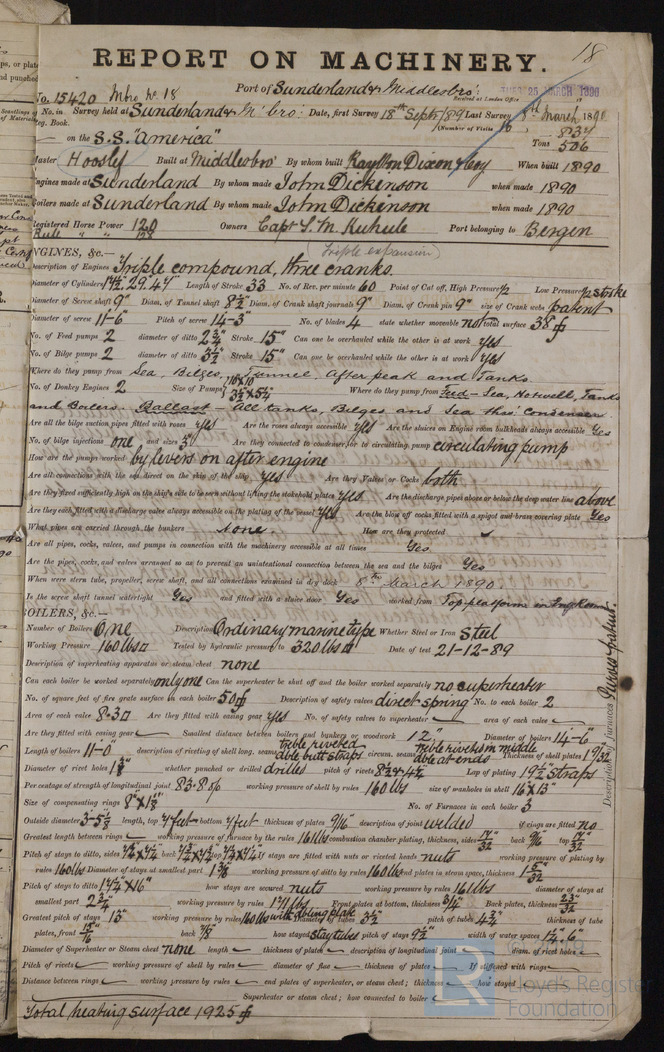 18
REPORT ON MACHINERY.
Port of Sunderland & Middlesbro'
TUES 25 MARCH 1890
Received at London Office
No. 15420 Mbro No 18
No. in Survey held at Sunderland & M'bro' Date, first Survey 18th Sept/89 Last Survey 8th March 1890
Reg. Book. (Number of Visits 10
on the S.S. "America" Tons 834 506
Master Built at Middlesbro' By whom built Raylton Dixon & Coy When built 1890
Engines made at Sunderland By whom made John Dickenson when made 1890
Boilers made at Sunderland By whom made John Dickenson when made 1890
Registered Horse Power 120 Owners Capt Port belonging to Bergen
Rule " " 128
ENGINES, &c.— (Triple expansion)
Description of Engines Triple compound, three cranks
Diameter of Cylinders 17½", 29, 47 Length of Stroke 33 No. of Rev. per minute 60 Point of Cut off, High Pressure ½ Low Pressure ½ stroke
Diameter of Screw shaft 9" Diam. of Tunnel shaft 8½" Diam. of Crank shaft journals 9" Diam. of Crank pin 9" size of Crank webs patent
Diameter of screw 11-6" Pitch of screw 14-3" No. of blades 4 state whether moveable not total surface 38
No. of Feed pumps 2 diameter of ditto 2¾" Stroke 15" Can one be overhauled while the other is at work yes
No. of Bilge pumps 2 diameter of ditto 3½" Stroke 15" Can one be overhauled while the other is at work yes
Where do they pump from Sea, Bilges, Tunnel, After peak and Tanks
No. of Donkey Engines 2 Size of Pumps 10 x 10 3½ x 5¼ Where do they pump from Feed – Sea, Hotwell, Tanks
and Boilers. Ballast – All tanks, Bilges and Sea thro' Condenser
Are all the bilge suction pipes fitted with roses yes Are the roses always accessible yes Are the sluices on Engine room bulkheads always accessible Yes
No. of bilge injections one and sizes 5" Are they connected to condenser, or to circulating pump circulating pump
How are the pumps worked by levers on after engine
Are all connections with the sea direct on the skin of the ship yes Are they Valves or Cocks both
Are they fixed sufficiently high on the ship's side to be seen without lifting the stokehold plates Yes Are the discharge pipes above or below the deep water line above
Are they each fitted with a discharge valve always accessible on the plating of the vessel Yes Are the blow off cocks fitted with a spigot and brass covering plate Yes
What pipes are carried through the bunkers None. How are they protected
Are all pipes, cocks, valves, and pumps in connection with the machinery accessible at all times Yes
Are the pipes, cocks, and valves arranged so as to prevent an unintentional connection between the sea and the bilges Yes
When were stern tube, propeller, screw shaft, and all connections examined in dry dock 8th March 1890.
Is the screw shaft tunnel watertight Yes and fitted with a sluice door Yes worked from Top platform in Eng Room
BOILERS, &c.—
Number of Boilers One Description Ordinary marine type Whether Steel or Iron Steel
Working Pressure 160 lbs Tested by hydraulic pressure to 320 lbs Date of test 21-12-89
Description of superheating apparatus or steam chest none
Can each boiler be worked separately only one Can the superheater be shut off and the boiler worked separately no superheater
No. of square feet of fire grate surface in each boiler 50 Description of safety valves direct spring No. to each boiler 2
Area of each valve 8.3 Are they fitted with easing gear yes No. of safety valves to superheater area of each valve
Are they fitted with easing gear Smallest distance between boilers and bunkers or woodwork 12" Diameter of boilers 14-6"
Length of boilers 11-0" description of riveting of shell long. seams treble riveted dble butt straps circum. seams treble rivets in middle dble at ends Thickness of shell plates 1 9/32
Diameter of rivet holes whether punched or drilled drilled pitch of rivets Lap of plating 19½" straps
Per centage of strength of longitudinal joint 83.8 % working pressure of shell by rules 160 lbs size of manholes in shell 16" x 13"
Size of compensating rings No. of Furnaces in each boiler 3
Outside diameter length, top 7 feet bottom 7 feet thickness of plates 9/16 description of joint welded if rings are fitted no
Greatest length between rings working pressure of furnace by the rules 161 lbs combustion chamber plating, thickness, sides 17/32 back 9/16 top 17/32
Pitch of stays to ditto, sides back top If stays are fitted with nuts or riveted heads nuts working pressure of plating by
rules 160 lbs Diameter of stays at smallest part 1⅜ working pressure of ditto by rules 160 lbs end plates in steam space, thickness
Pitch of stays to ditto how stays are secured nuts working pressure by rules 161 lbs diameter of stays at
smallest part 2¾" working pressure by rules Front plates at bottom, thickness 3/4 Back plates, thickness 23/32
Greatest pitch of stays 13" working pressure by rules 160 lbs with dbling plate Diameter of tubes 3½" pitch of tubes 4¾ thickness of tube
plates, front 15/16 back how stayed stay tubes pitch of stays 9½" width of water spaces
Diameter of Superheater or Steam chest none length thickness of plates description of longitudinal joint diam. of rivet holes
Pitch of rivets working pressure of shell by rules diameter of flue thickness of plates If stiffened with rings
Distance between rings working pressure by rules end plates of superheater, or steam chest; thickness how stayed
Superheater or steam chest; how connected to boiler
Total heating surface 1925
Description of furnaces Purves patent.
Lloyd's Register
Foundation